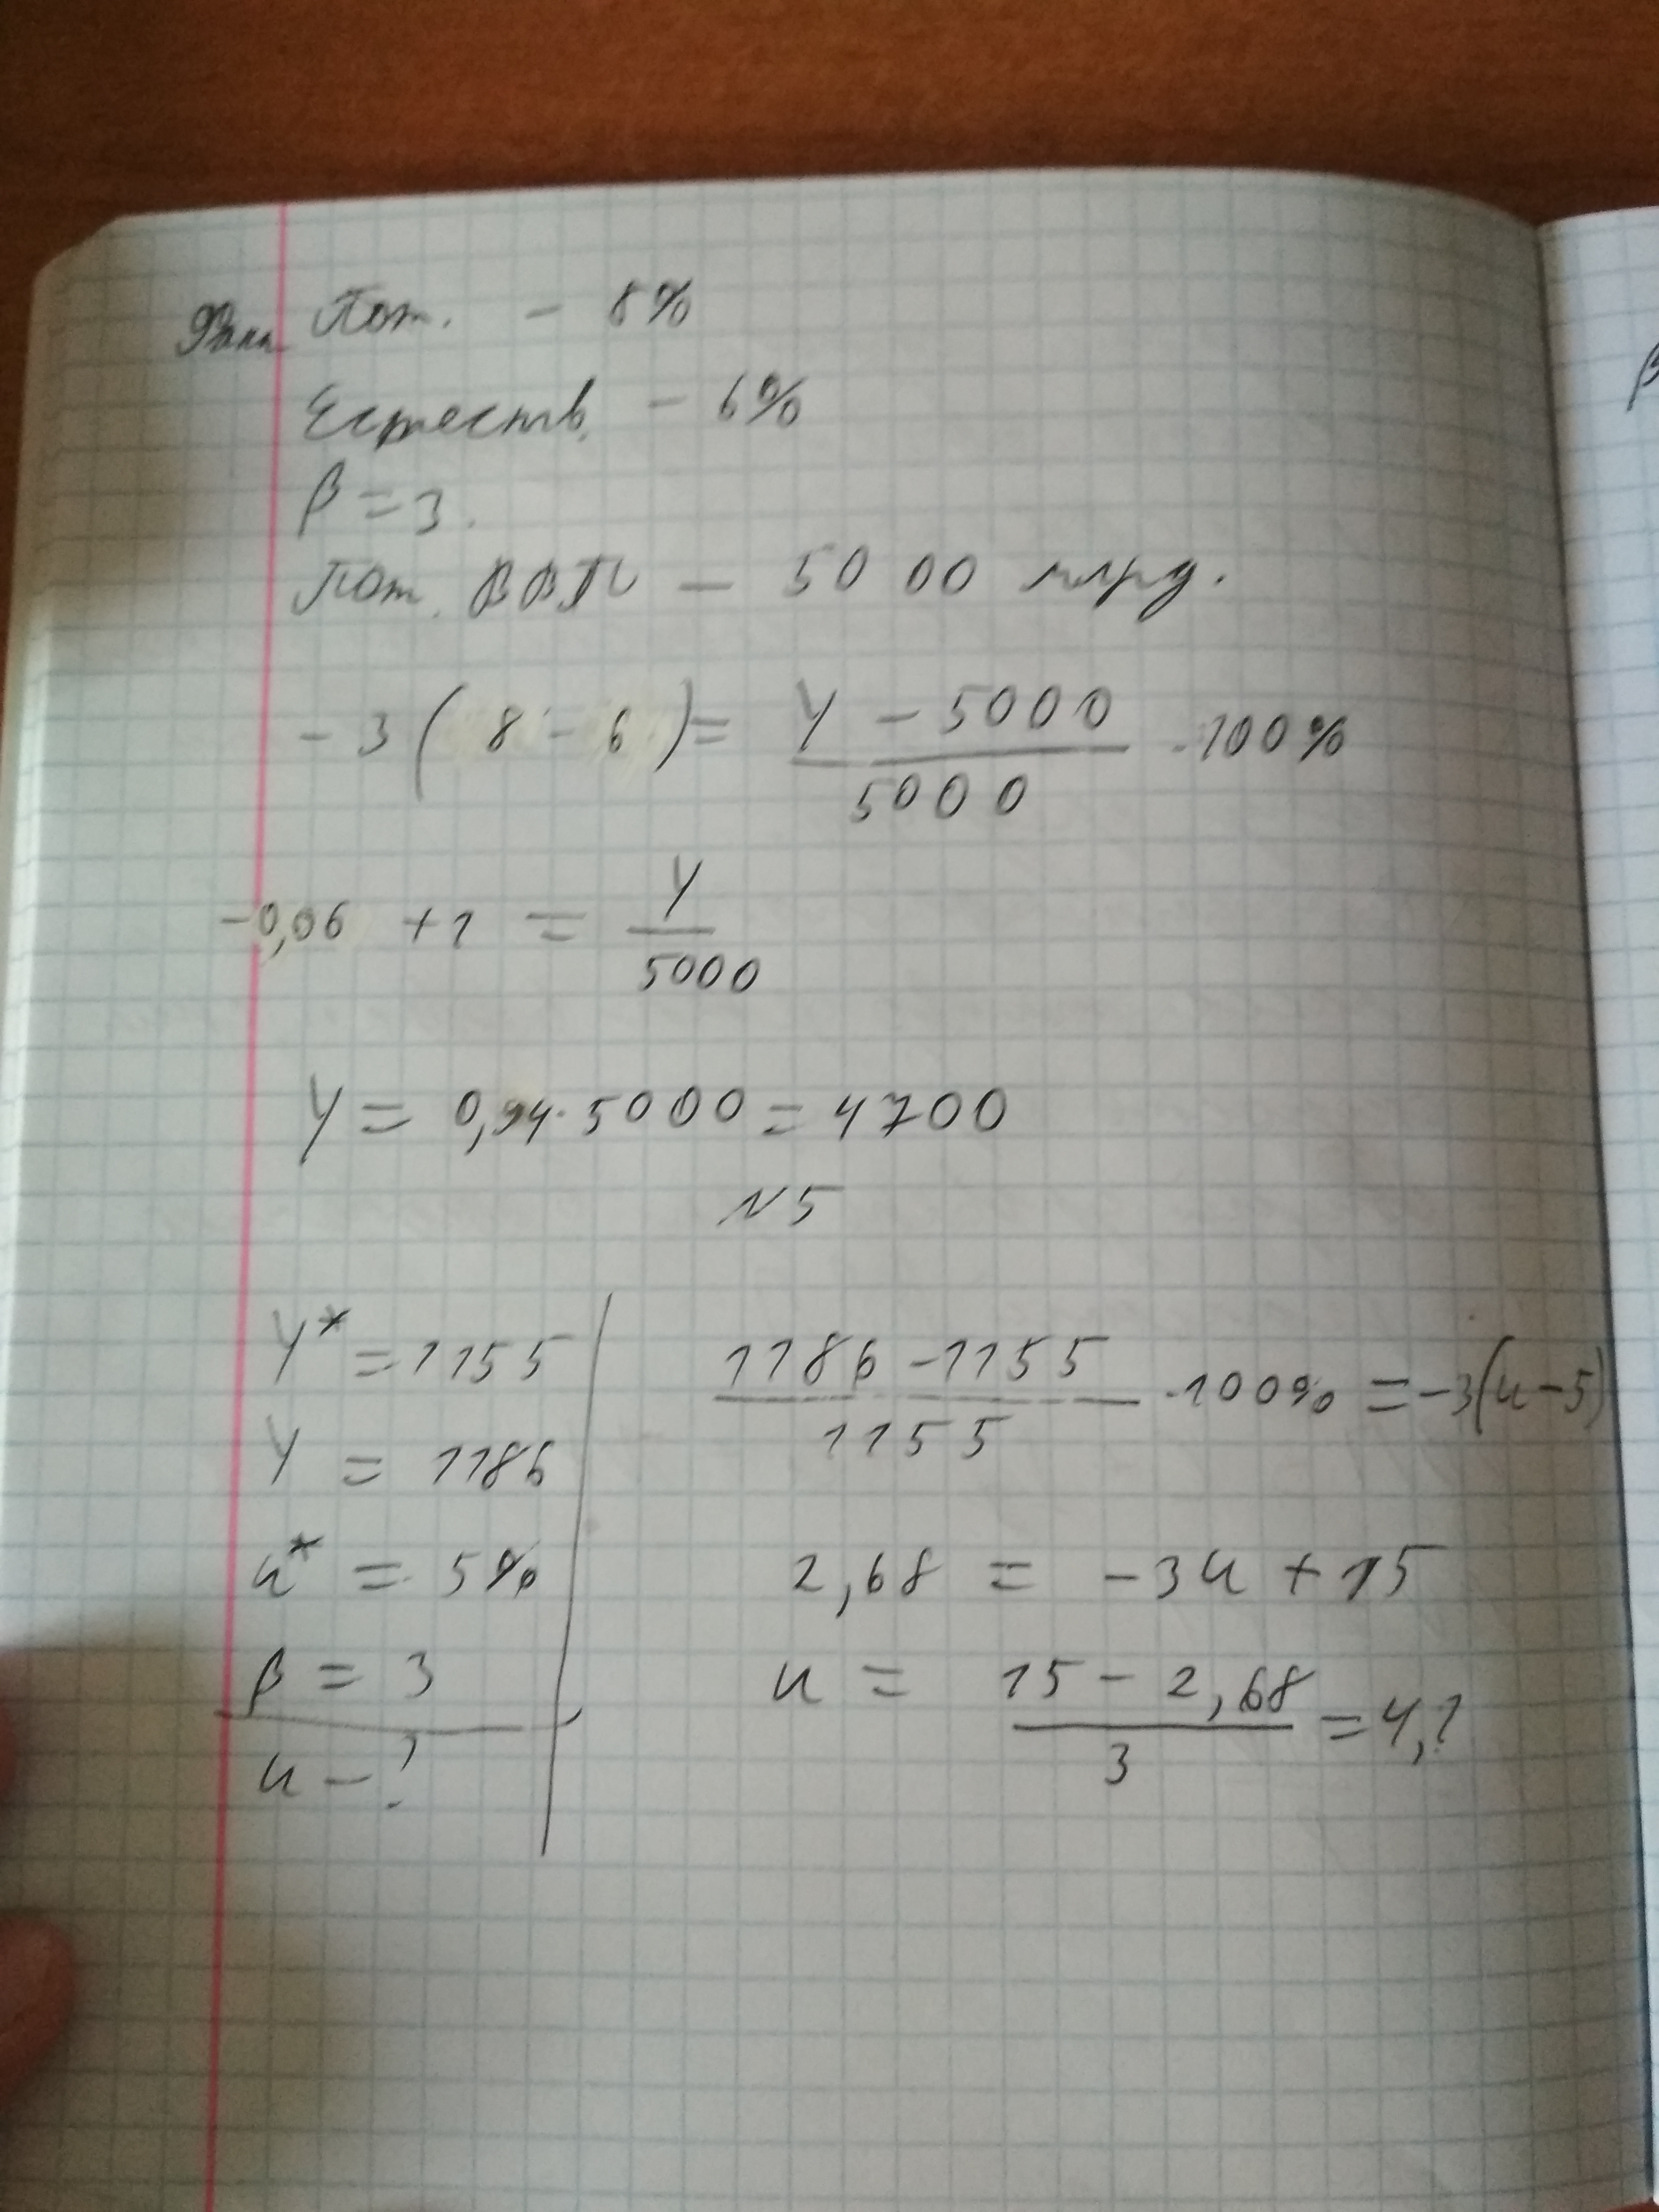 Факт Пот. - 8%
Естеств. - 6%
β = 3.
Пот. ВВП - 5000 млрд.
-3(8-6) = (Y - 5000)/5000 · 100%
-0,06 + 1 = Y/5000
Y = 0,94 · 5000 = 4700
N5
Y* = 1155
Y = 1186
u* = 5%
β = 3
u - ?
(1186 - 1155)/1155 · 100% = -3(u-5)
2,68 = -3u + 15
u = (15 - 2,68)/3 = 4,1
β